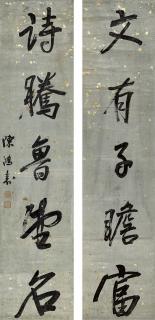 文有子瞻富
詩騰魯直名
陳鴻壽